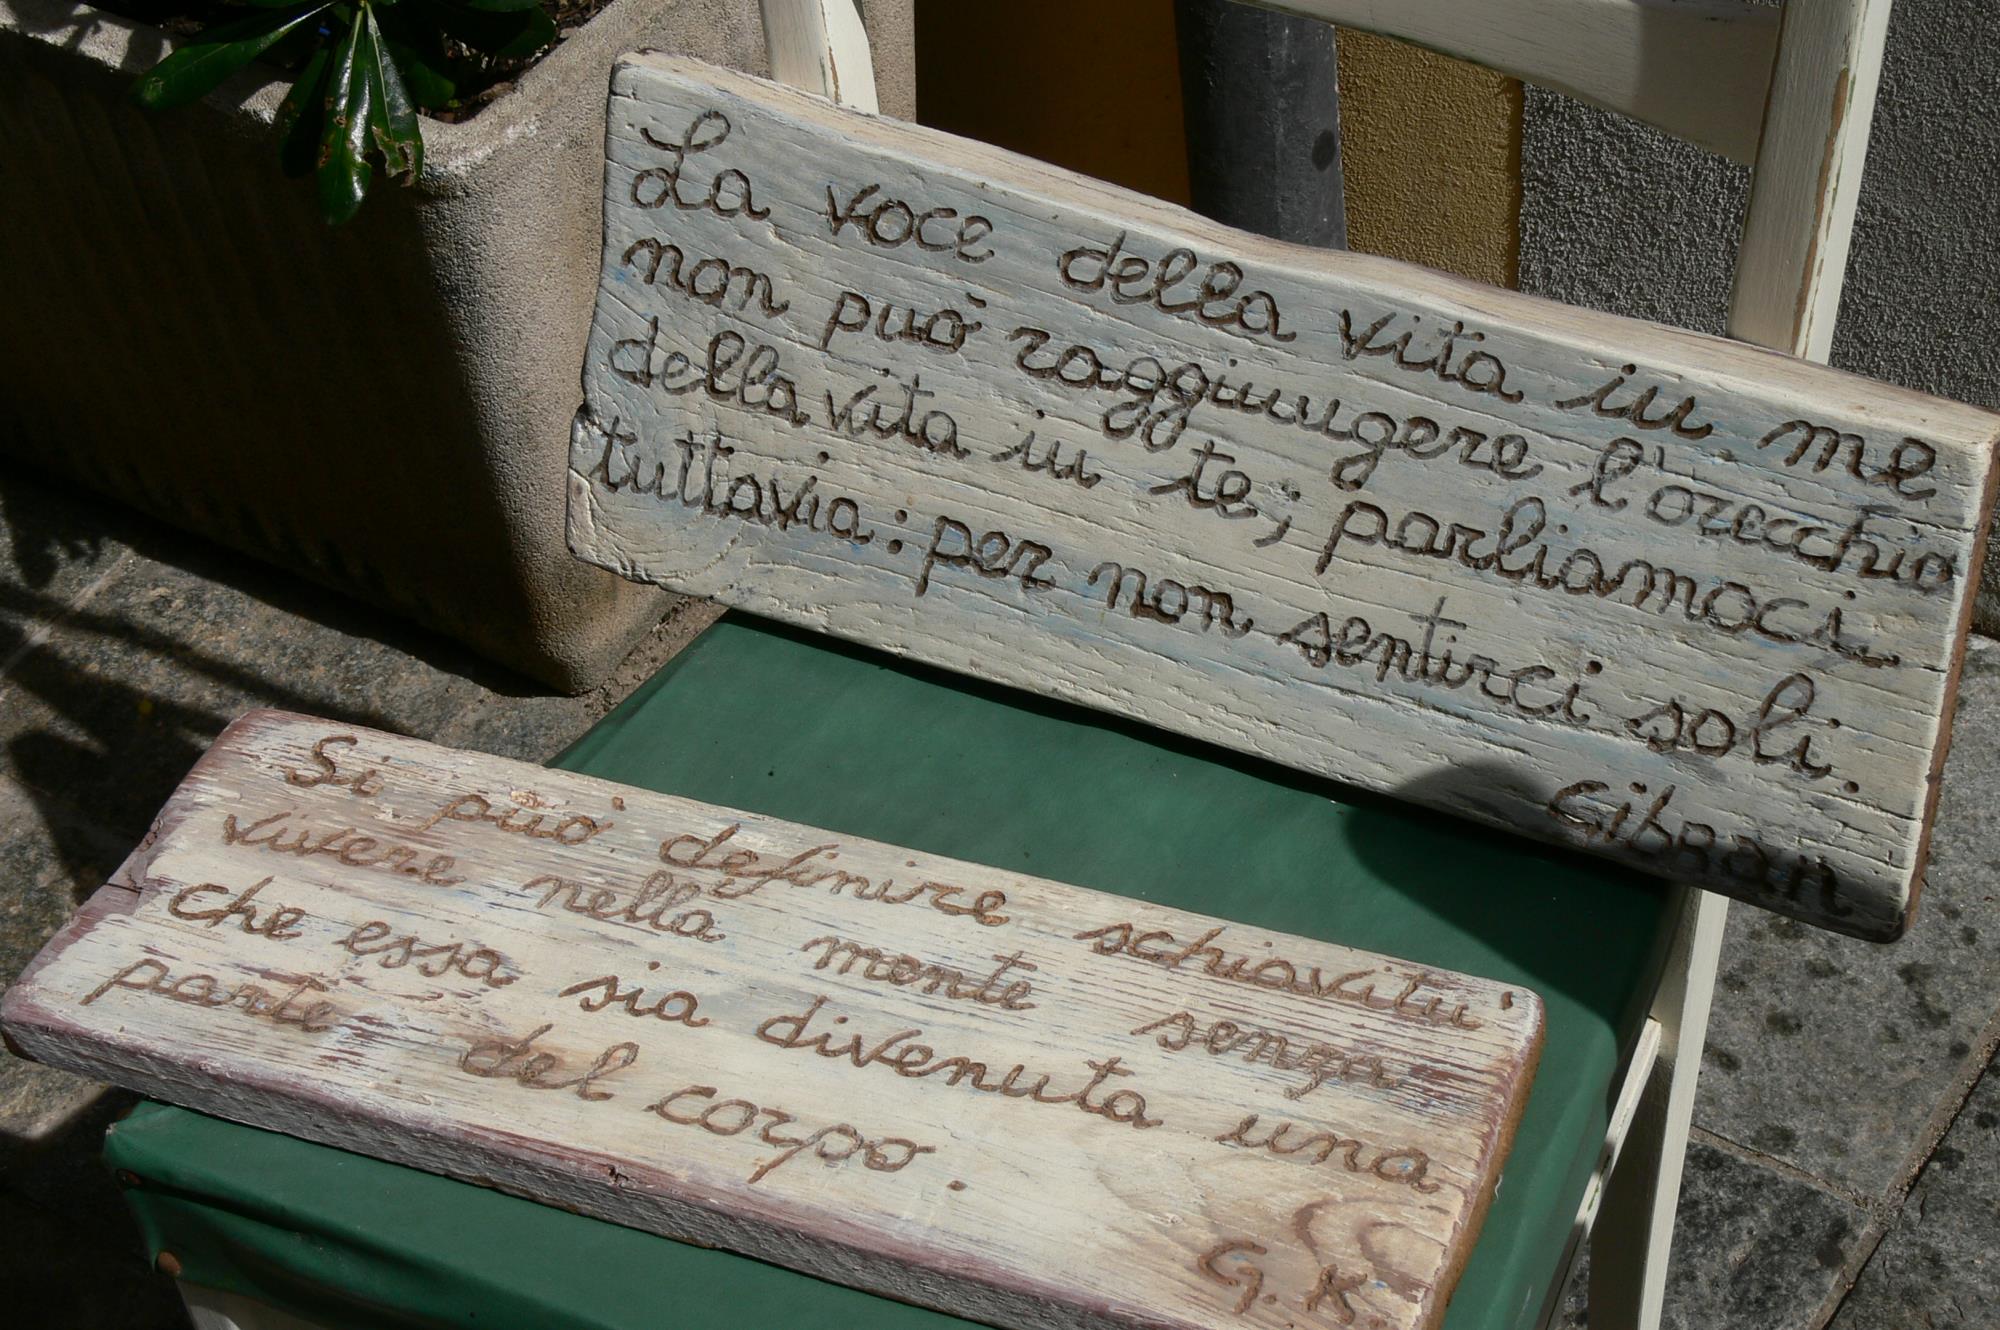 La voce della vita in me
non può raggiungere l'orecchio
della vita in te; parliamoci
tuttavia: per non sentirci soli.
Gibran
Si può definire schiavitu'
vivere nella mente senza
che essa sia divenuta una
parte del corpo.
G. K.